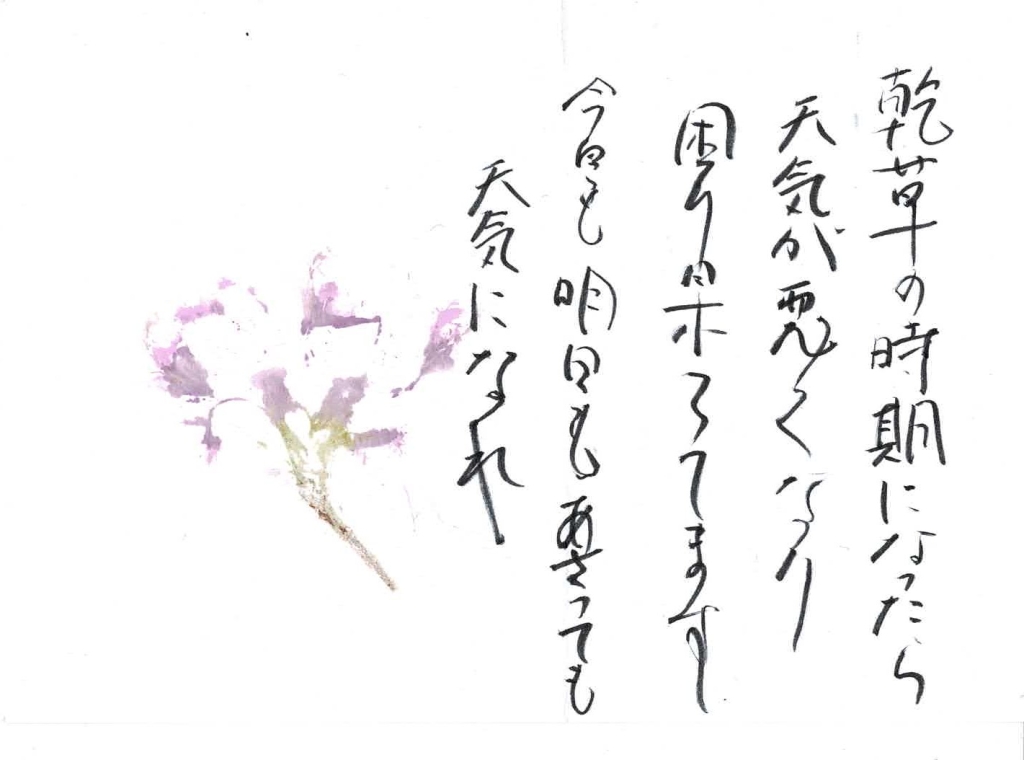 乾草の時期になったら
天気が悪くなり
困り果ってます
今日も明日もあさっても
天気になれ